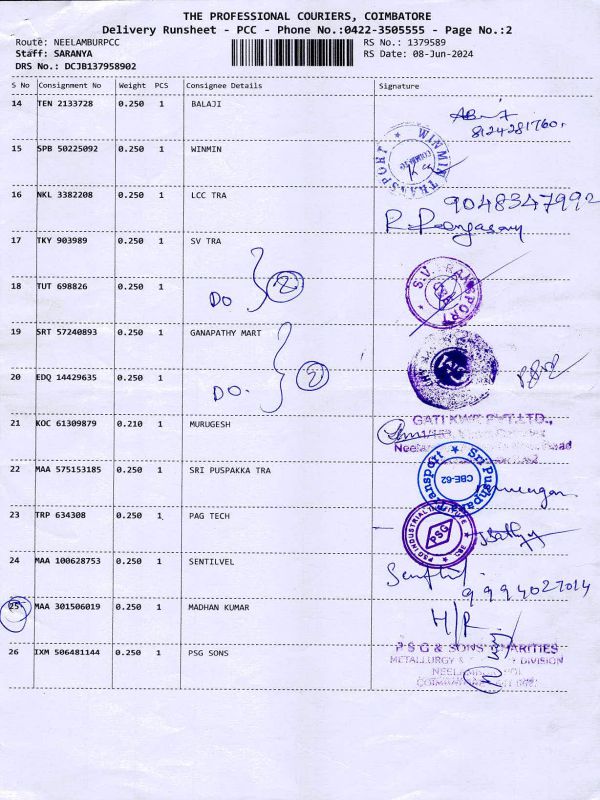 THE PROFESSIONAL COURIERS, COIMBATORE
Delivery Runsheet - PCC - Phone No.:0422-3505555 - Page No.:2
Route: NEELAMBURPCC RS No.: 1379589
Staff: SARANYA RS Date: 08-Jun-2024
DRS No.: DCJB137958902
S No Consignment No Weight PCS Consignee Details Signature
14 TEN 2133728 0.250 1 BALAJI
8124281760
15 SPB 50225092 0.250 1 WINMIN
WINMIN TRANSPORT
16 NKL 3382208 0.250 1 LCC TRA
9048347992
17 TKY 903989 0.250 1 SV TRA
18 TUT 698826 0.250 1 DO 2
S.V. TRANSPORT
19 SRT 57240893 0.250 1 GANAPATHY MART
20 EDQ 14429635 0.250 1 DO. 2
21 KOC 61309879 0.210 1 MURUGESH
GATI KWE PVT.LTD.,
22 MAA 575153185 0.250 1 SRI PUSPAKKA TRA
CBE-62
23 TRP 634308 0.250 1 PAG TECH
PSG INDUSTRIAL INSTITUTE
PSG
24 MAA 100628753 0.250 1 SENTILVEL
9994027014
25 MAA 301506019 0.250 1 MADHAN KUMAR
H/R
26 IXM 506481144 0.250 1 PSG SONS
P S G & SONS' CHARITIES
METALLURGY & DIVISION